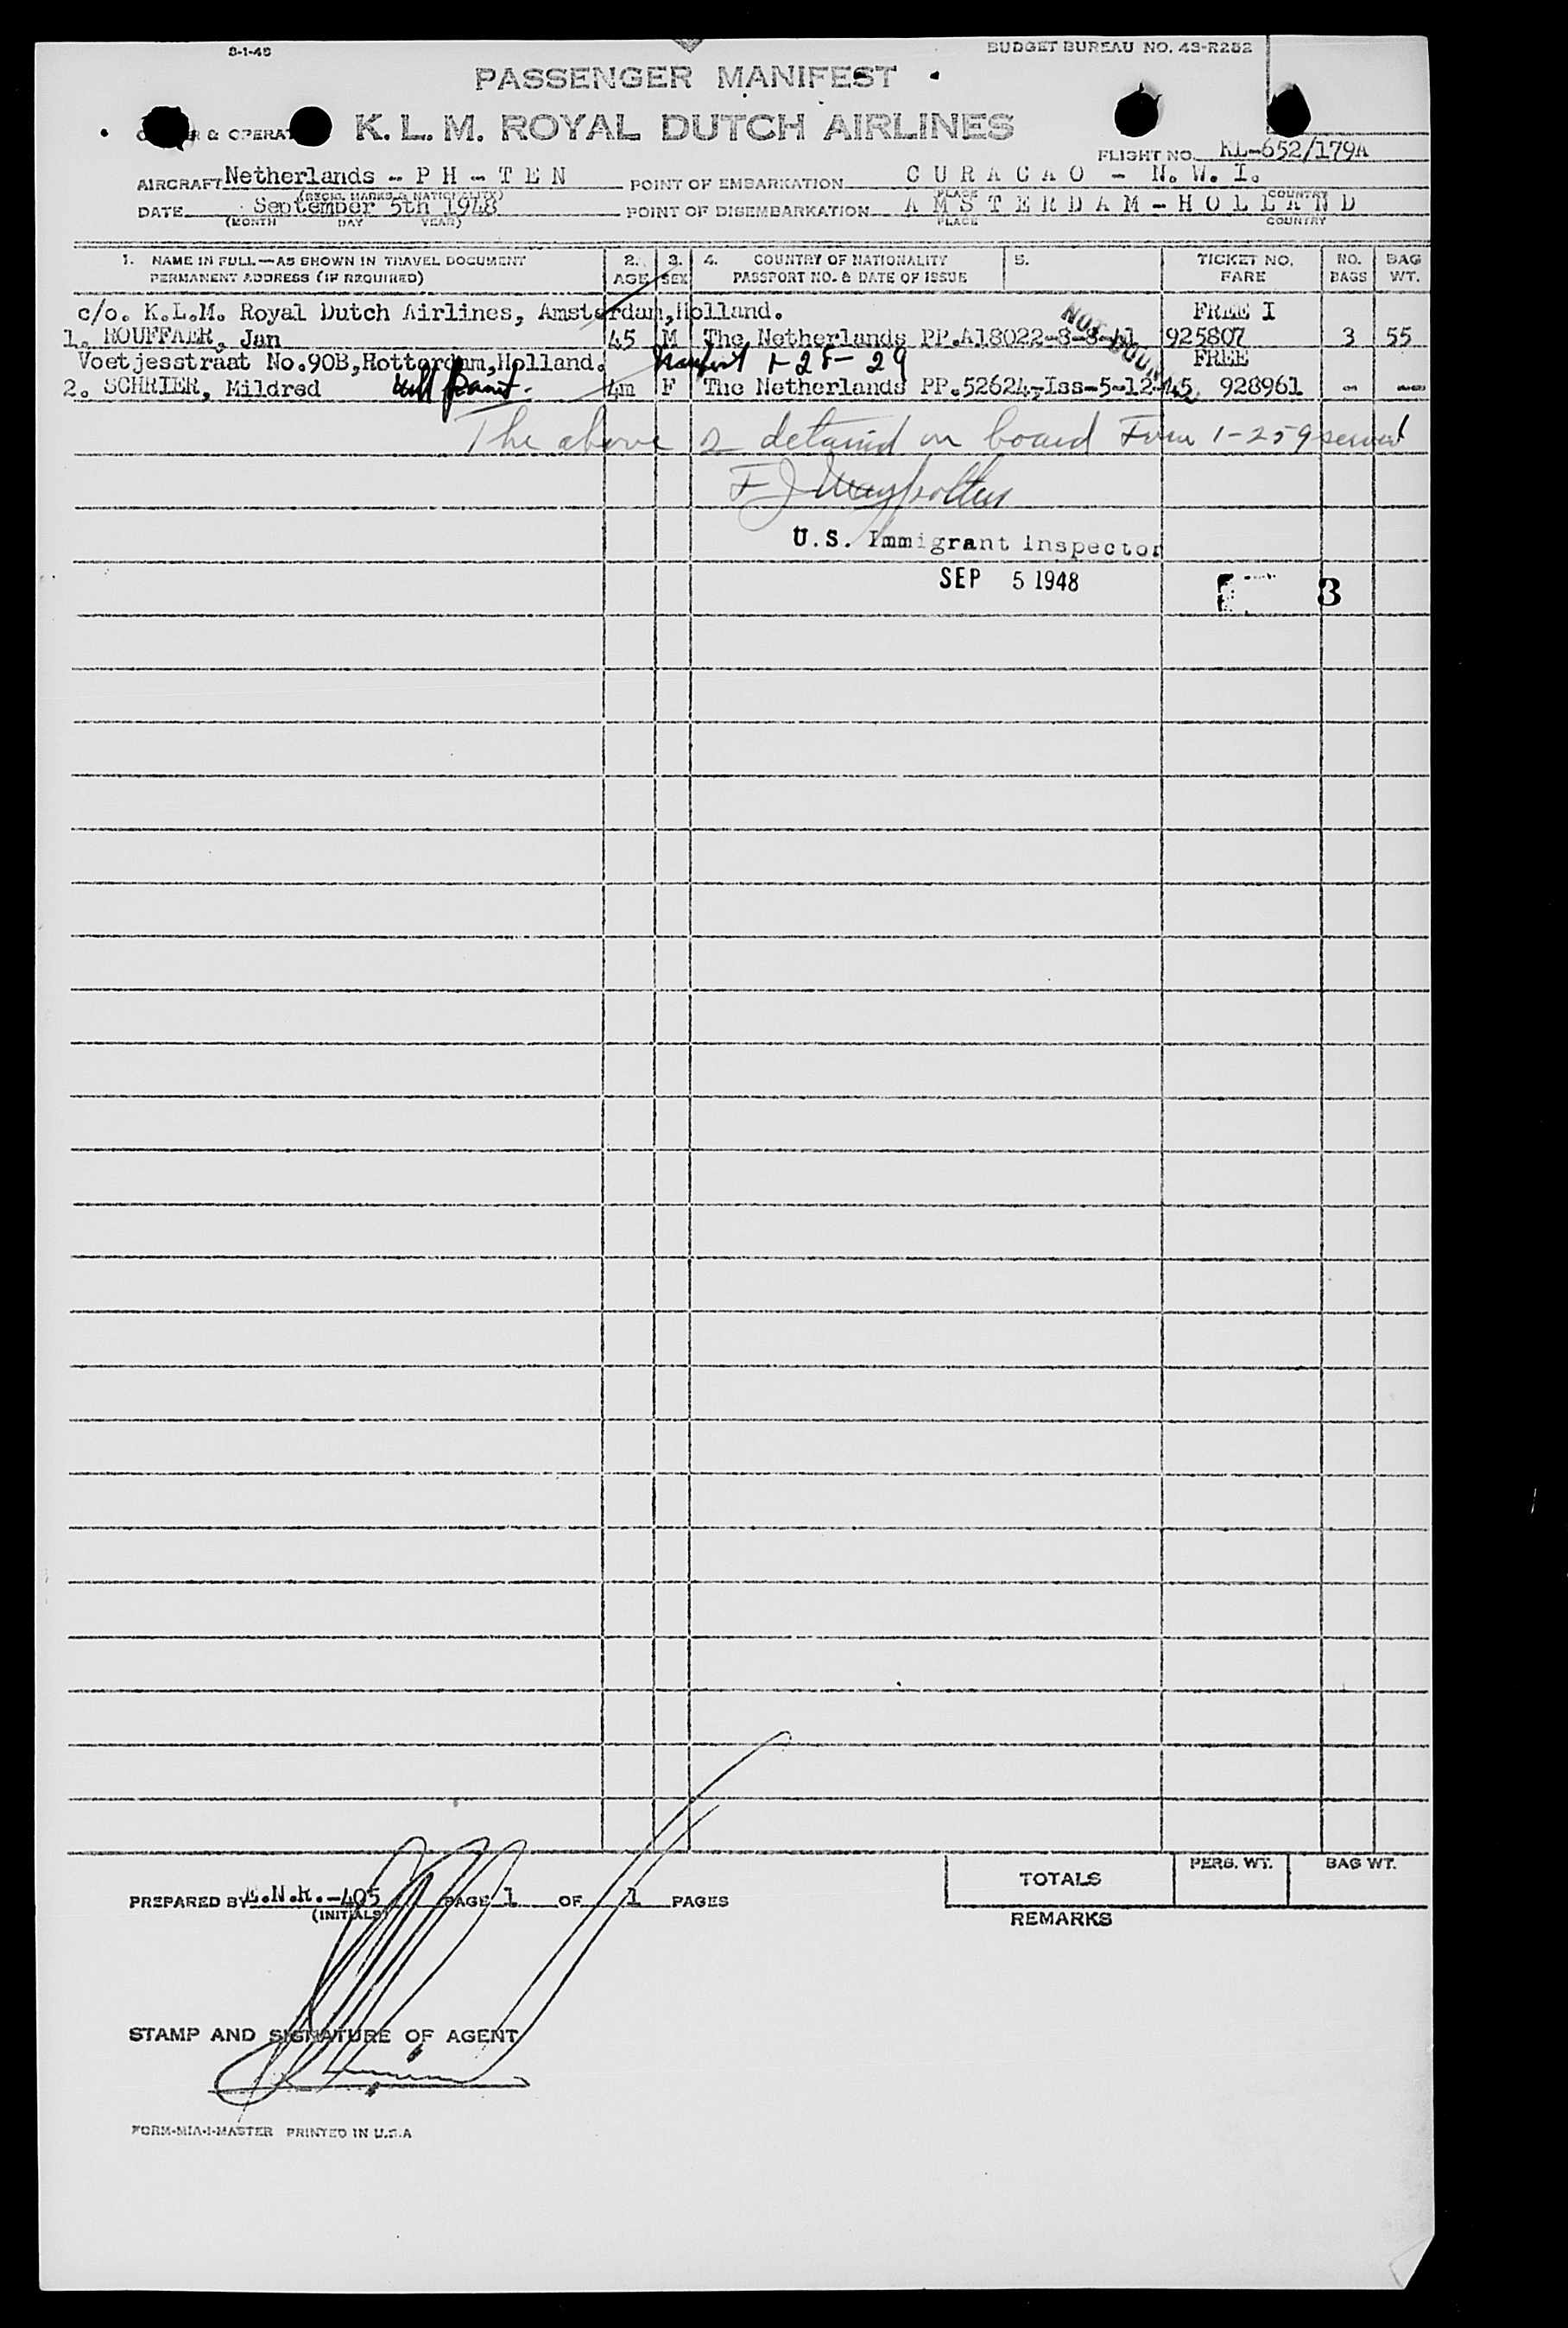 8-1-48
BUDGET BUREAU NO. 43-R252
PASSENGER MANIFEST
& OPERAT K. L. M. ROYAL DUTCH AIRLINES
FLIGHT NO. KL-652/179A
AIRCRAFT Netherlands - P H - T E N POINT OF EMBARKATION C U R A C A O - N. W. I.
(REGIS. MARKS & NATIONALITY) PLACE COUNTRY
DATE September 5th 1948 POINT OF DISEMBARKATION A M S T E R D A M - H O L L A N D
(MONTH DAY YEAR) PLACE COUNTRY
1. NAME IN FULL—AS SHOWN IN TRAVEL DOCUMENT 2. 3. 4. COUNTRY OF NATIONALITY 5. TICKET NO. NO. BAG
PERMANENT ADDRESS (IF REQUIRED) AGE SEX PASSPORT NO. & DATE OF ISSUE FARE BAGS WT.
c/o. K.L.M. Royal Dutch Airlines, Amsterdam, Holland. FREE I
1. ROUFFAER, Jan 45 M The Netherlands PP.A18022-8-8-41 925807 3 55
Voetjesstraat No.90B, Rotterdam, Holland. 1-28-29 FREE
2. SCHRIER, Mildred 4m F The Netherlands PP.52624-Iss-5-12-45 928961 - -
The above 2 detained on board Form 1-259 served
U.S. Immigrant Inspector
SEP 5 1948
3
TOTALS PERS. WT. BAG WT.
PREPARED BY -405 PAGE 1 OF 1 PAGES
(INITIALS)
REMARKS
STAMP AND SIGNATURE OF AGENT
FORM-MIA-1-MASTER PRINTED IN U.S.A